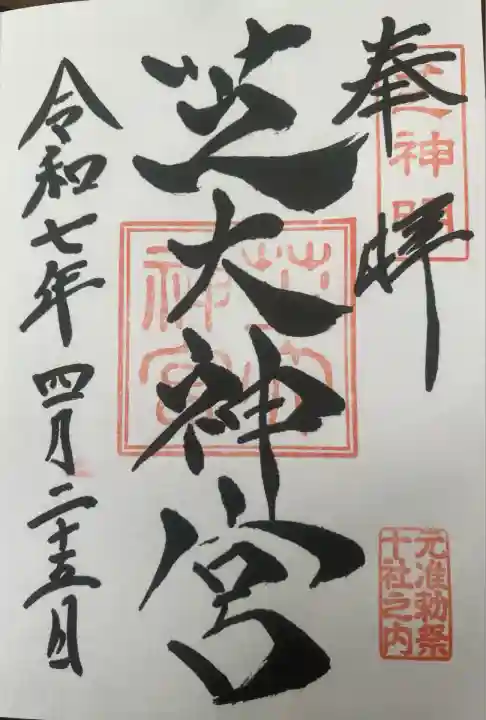 奉拝
芝神明
元准勅祭
十社之内
芝大神宮
芝大
神宮
令和七年四月二十五日